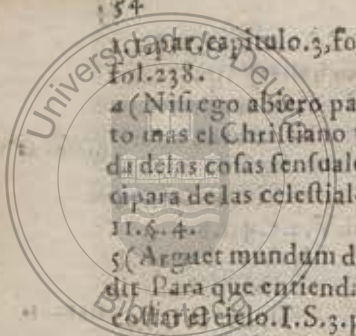 54
1. I. par. capitulo. 3, fo
fol. 238.
4 (Nisi ego abiero pa
to mas el Christiano
da delas cosas sensuale
cipara de las celestial
11. §. 4.
5 (Arguet mundum d
dit Para que entienda
costar el cielo. I. S. 3. p
Universidad de De
Biblioteca